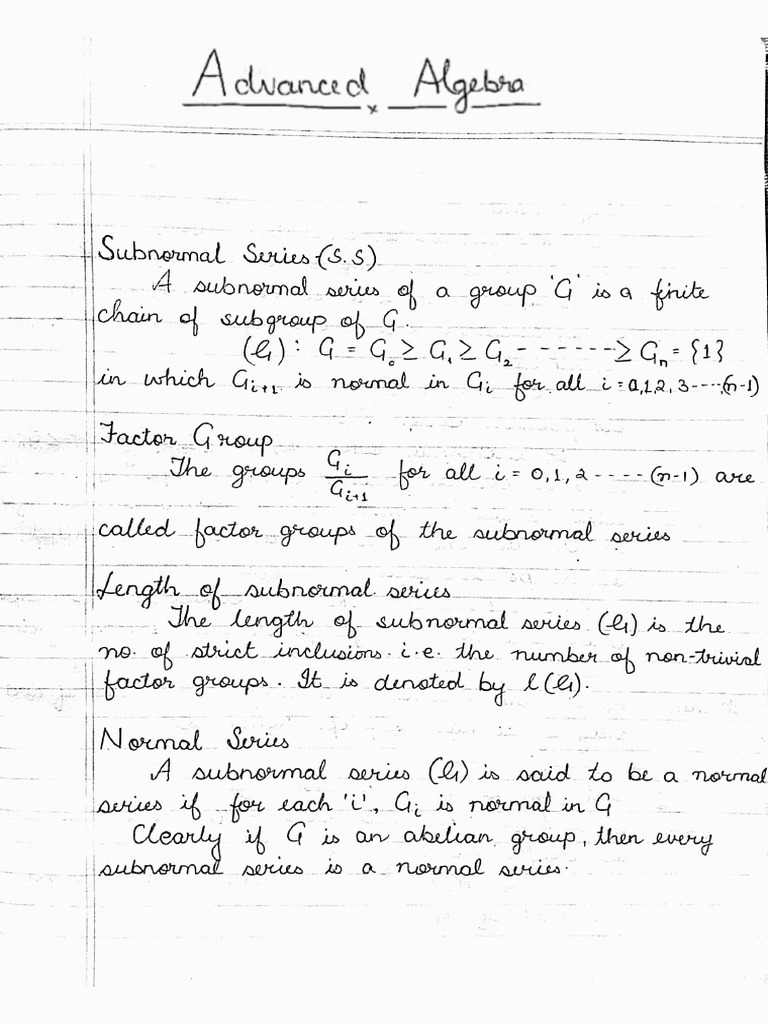 Advanced Algebra
Subnormal Series-(S.S)
A subnormal series of a group 'G' is a finite
chain of subgroup of G.
(𝒢): G = G₀ ≥ G₁ ≥ G₂ ------- ≥ Gₙ = {1}
in which Gᵢ₊₁ is normal in Gᵢ for all i = 0,1,2,3----(n-1)
Factor Group
The groups Gᵢ/Gᵢ₊₁ for all i = 0,1,2-----(n-1) are
called factor groups of the subnormal series
Length of subnormal series
The length of subnormal series (𝒢) is the
no. of strict inclusions. i.e. the number of non-trivial
factor groups. It is denoted by l(𝒢).
Normal Series
A subnormal series (𝒢) is said to be a normal
series if for each 'i', Gᵢ is normal in G
Clearly if G is an abelian group, then every
subnormal series is a normal series.